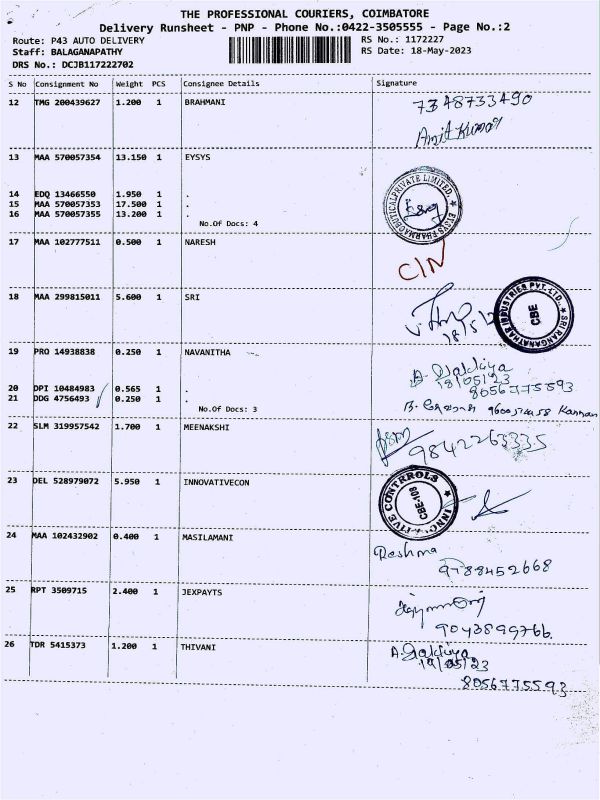 THE PROFESSIONAL COURIERS, COIMBATORE
Delivery Runsheet - PNP - Phone No.:0422-3505555 - Page No.:2
Route: P43 AUTO DELIVERY
RS No.: 1172227
Staff: BALAGANAPATHY
RS Date: 18-May-2023
DRS No.: DCJB117222702
S No Consignment No Weight PCS Consignee Details Signature
12 TMG 200439627 1.200 1 BRAHMANI 7348733490
Amit Kumar
13 MAA 570057354 13.150 1 EYSYS
14 EDQ 13466550 1.950 1 .
15 MAA 570057353 17.500 1 .
16 MAA 570057355 13.200 1 .
No.Of Docs: 4
17 MAA 102777511 0.500 1 NARESH
C/N
18 MAA 299815011 5.600 1 SRI
18/5/2
SRI RANGANATHAR INDUSTRIES PVT. LTD.
CBE
19 PRO 14938838 0.250 1 NAVANITHA
18/05/23
8056775593
20 DPI 10484983 0.565 1 .
21 DDG 4756493 0.250 1 .
Kannan
No.Of Docs: 3
22 SLM 319957542 1.700 1 MEENAKSHI
9842263335
23 DEL 528979072 5.950 1 INNOVATIVECON
CBE-108
24 MAA 102432902 0.400 1 MASILAMANI
Reshma
9788452668
25 RPT 3509715 2.400 1 JEXPAYTS
9043899766
26 TDR 5415373 1.200 1 THIVANI
8056775593